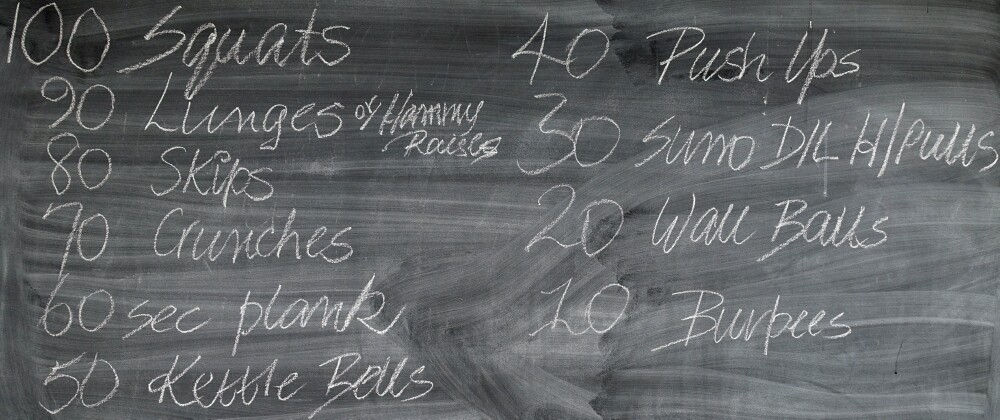 100 Squats
90 Lunges or Hammy
Raises
80 Skips
70 Crunches
60 sec plank
50 Kettle Bells
40 Push Ups
30 Sumo D/L H/Pulls
20 Wall Balls
10 Burpees